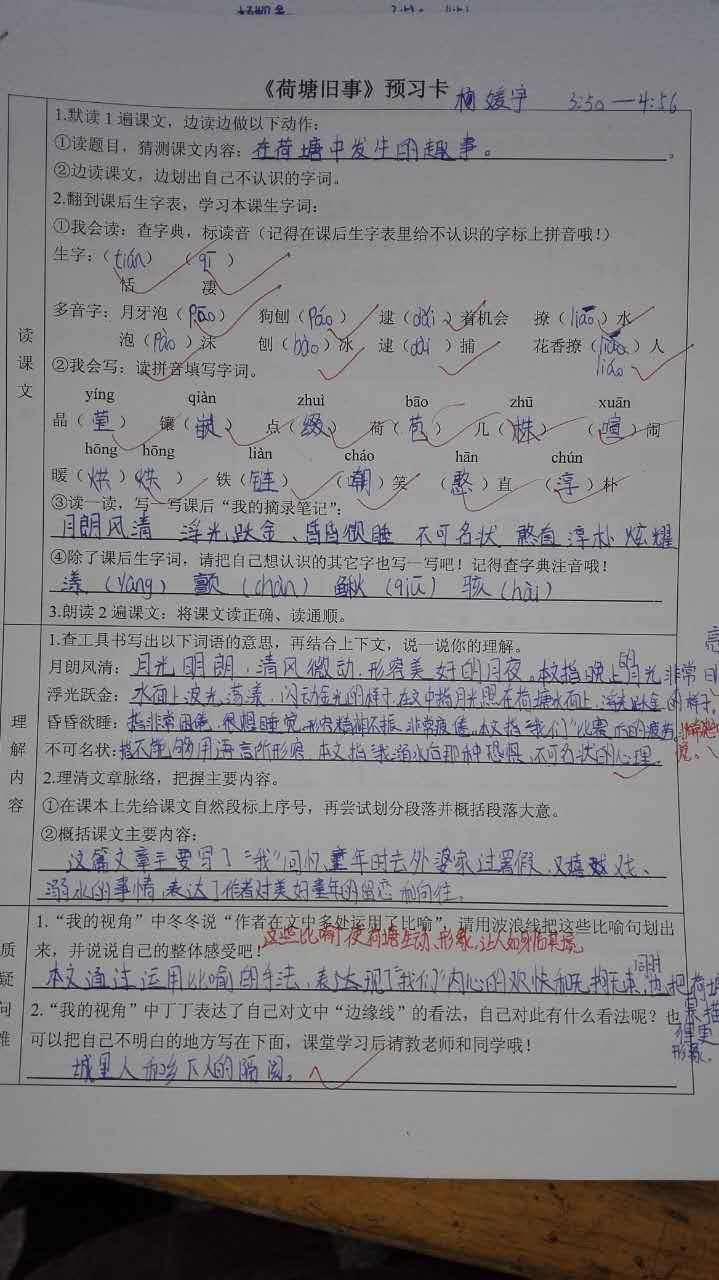 《荷塘旧事》预习卡 媛宇 3:50—4:56
1.默读1遍课文，边读边做以下动作：
①读题目，猜测课文内容：在荷塘中发生的趣事。
②边读课文，边划出自己不认识的字词。
2.翻到课后生字表，学习本课生字词：
①我会读：查字典，标读音（记得在课后生字表里给不认识的字标上拼音哦！）
生字：（tián） （qī）
恬 凄
多音字：月牙泡（pāo） 狗刨（páo） 逮（dǎi）着机会 撩（liāo）水
泡（pào）沫 刨（bào）冰 逮（dài）捕 花香撩（）人
liáo
读课文
②我会写：读拼音填写字词。
yíng qiàn zhuì bāo zhū xuān
晶（莹） 镶（嵌） 点（缀） 荷（苞） 几（株） （喧）闹
hōng hōng liàn cháo hān chún
暖（烘）烘） 铁（链） （嘲）笑 （憨）直 （淳）朴
③读一读，写一写课后“我的摘录笔记”：
月朗风清 浮光跃金、昏昏欲睡 不可名状 憨直 淳朴 炫耀
④除了课后生字词，请把自己想认识的其它字也写一写吧！记得查字典注音哦！
漾（yàng） 颤（chàn） 鳅（qiū） 骇（hài）
3.朗读2遍课文：将课文读正确、读通顺。
1.查工具书写出以下词语的意思，再结合上下文，说一说你的理解。
月朗风清：月光明朗，清风微动，形容美好的月夜。本文指晚上的月光非常
浮光跃金：水面上波光荡漾，闪动金光的样子。在文中指月光照在荷塘水面上，浮光跃金的样子。
昏昏欲睡：指非常困倦，很想睡觉，形容精神不振，非常疲倦。本文指“我们”比赛后的疲劳。
不可名状：指不能够用语言所形容。本文指我溺水后那种恐惧、不可名状的心理。
理解内容
2.理清文章脉络，把握主要内容。
①在课本上先给课文自然段标上序号，再尝试划分段落并概括段落大意。
②概括课文主要内容：
这篇文章主要写了“我”回忆童年时去外婆家过暑假，又嬉戏、
溺水的事情，表达了作者对美好童年的留恋和向往。
1.“我的视角”中冬冬说“作者在文中多处运用了比喻”，请用波浪线把这些比喻句划出
来，并说说自己的整体感受吧！这些比喻使荷塘生动、形象，让人如身临其境
本文通过运用比喻的手法，表达现了“我们”内心的欢快和无拘无束，同时也把荷塘
景描得更形象。
质疑问难
2.“我的视角”中丁丁表达了自己对文中“边缘线”的看法，自己对此有什么看法呢？也
可以把自己不明白的地方写在下面，课堂学习后请教老师和同学哦！
城里人和乡下人的隔阂。